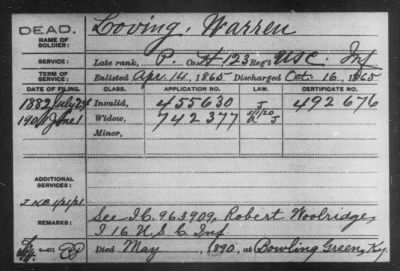 DEAD. Loving, Warren
NAME OF SOLDIER:
SERVICE: Late rank, P. Co. H 123 Reg't USC. Inf
TERM OF SERVICE: Enlisted Apr. 14, 1865 Discharged Oct. 16, 1865
DATE OF FILING. CLASS. APPLICATION NO. LAW. CERTIFICATE NO.
1882 July 24 Invalid, 455630 J 492676
Widow, 742377
Minor,
ADDITIONAL SERVICES:
REMARKS: See I.C. 963909, Robert Woolridge,
I 16 U.S.C. Inf
Died May , 1890, at Bowling Green, Ky.